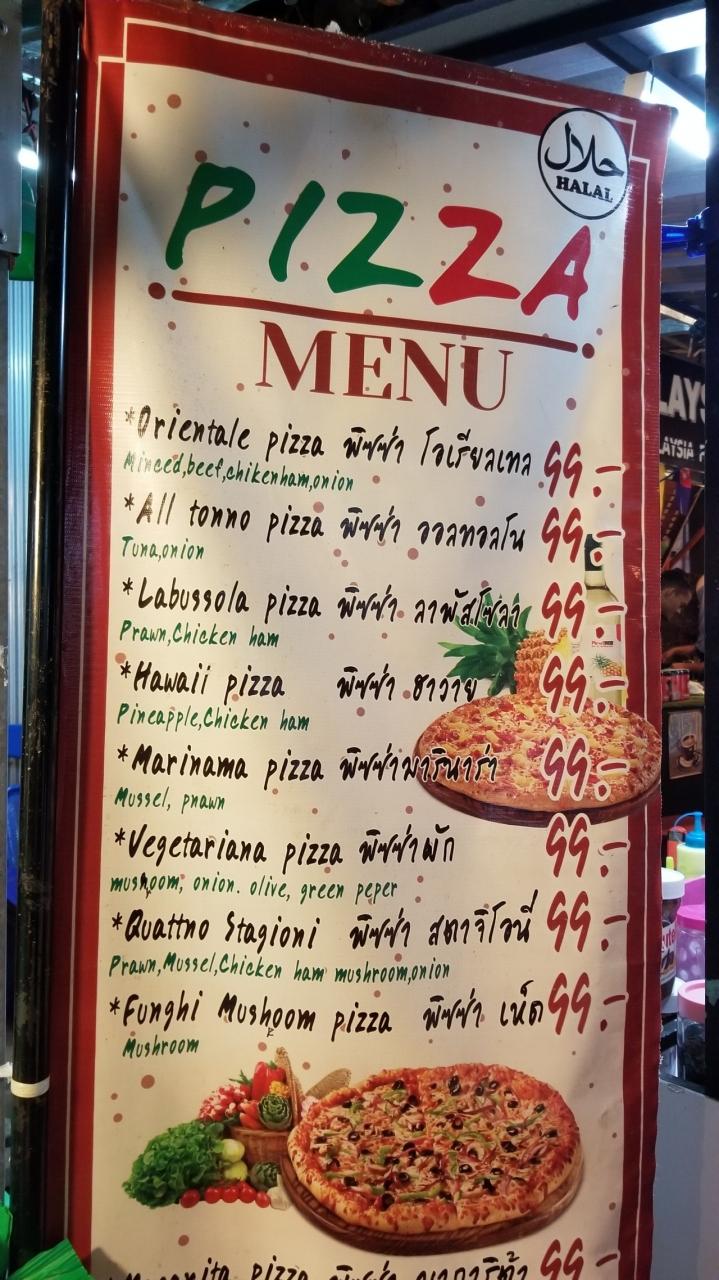 حلال
HALAL
PIZZA
MENU
*Orientale pizza พิซซ่า โอเรียลเทล 99.-
Minced,beef,chikenham,onion
*All tonno pizza พิซซ่า ออลทอลโน 99.-
Tuna,onion
*Labussola pizza พิซซ่า ลาพัสโซลา 99.-
Prawn,Chicken ham
*Hawaii pizza พิซซ่า ฮาวาย 99.-
Pineapple,Chicken ham
*Marinama pizza พิซซ่ามารินาร่า 99.-
Mussel, pnawn
*Vegetariana pizza พิซซ่าผัก 99.-
mushoom, onion. olive, green peper
*Quattno Stagioni พิซซ่า สตาจิโอนี่ 99.-
Prawn,Mussel,Chicken ham mushroom,onion
*Funghi Mushoom pizza พิซซ่า เห็ด 99.-
Mushroom
pizza พิซซ่า 99.-
LAYSIA